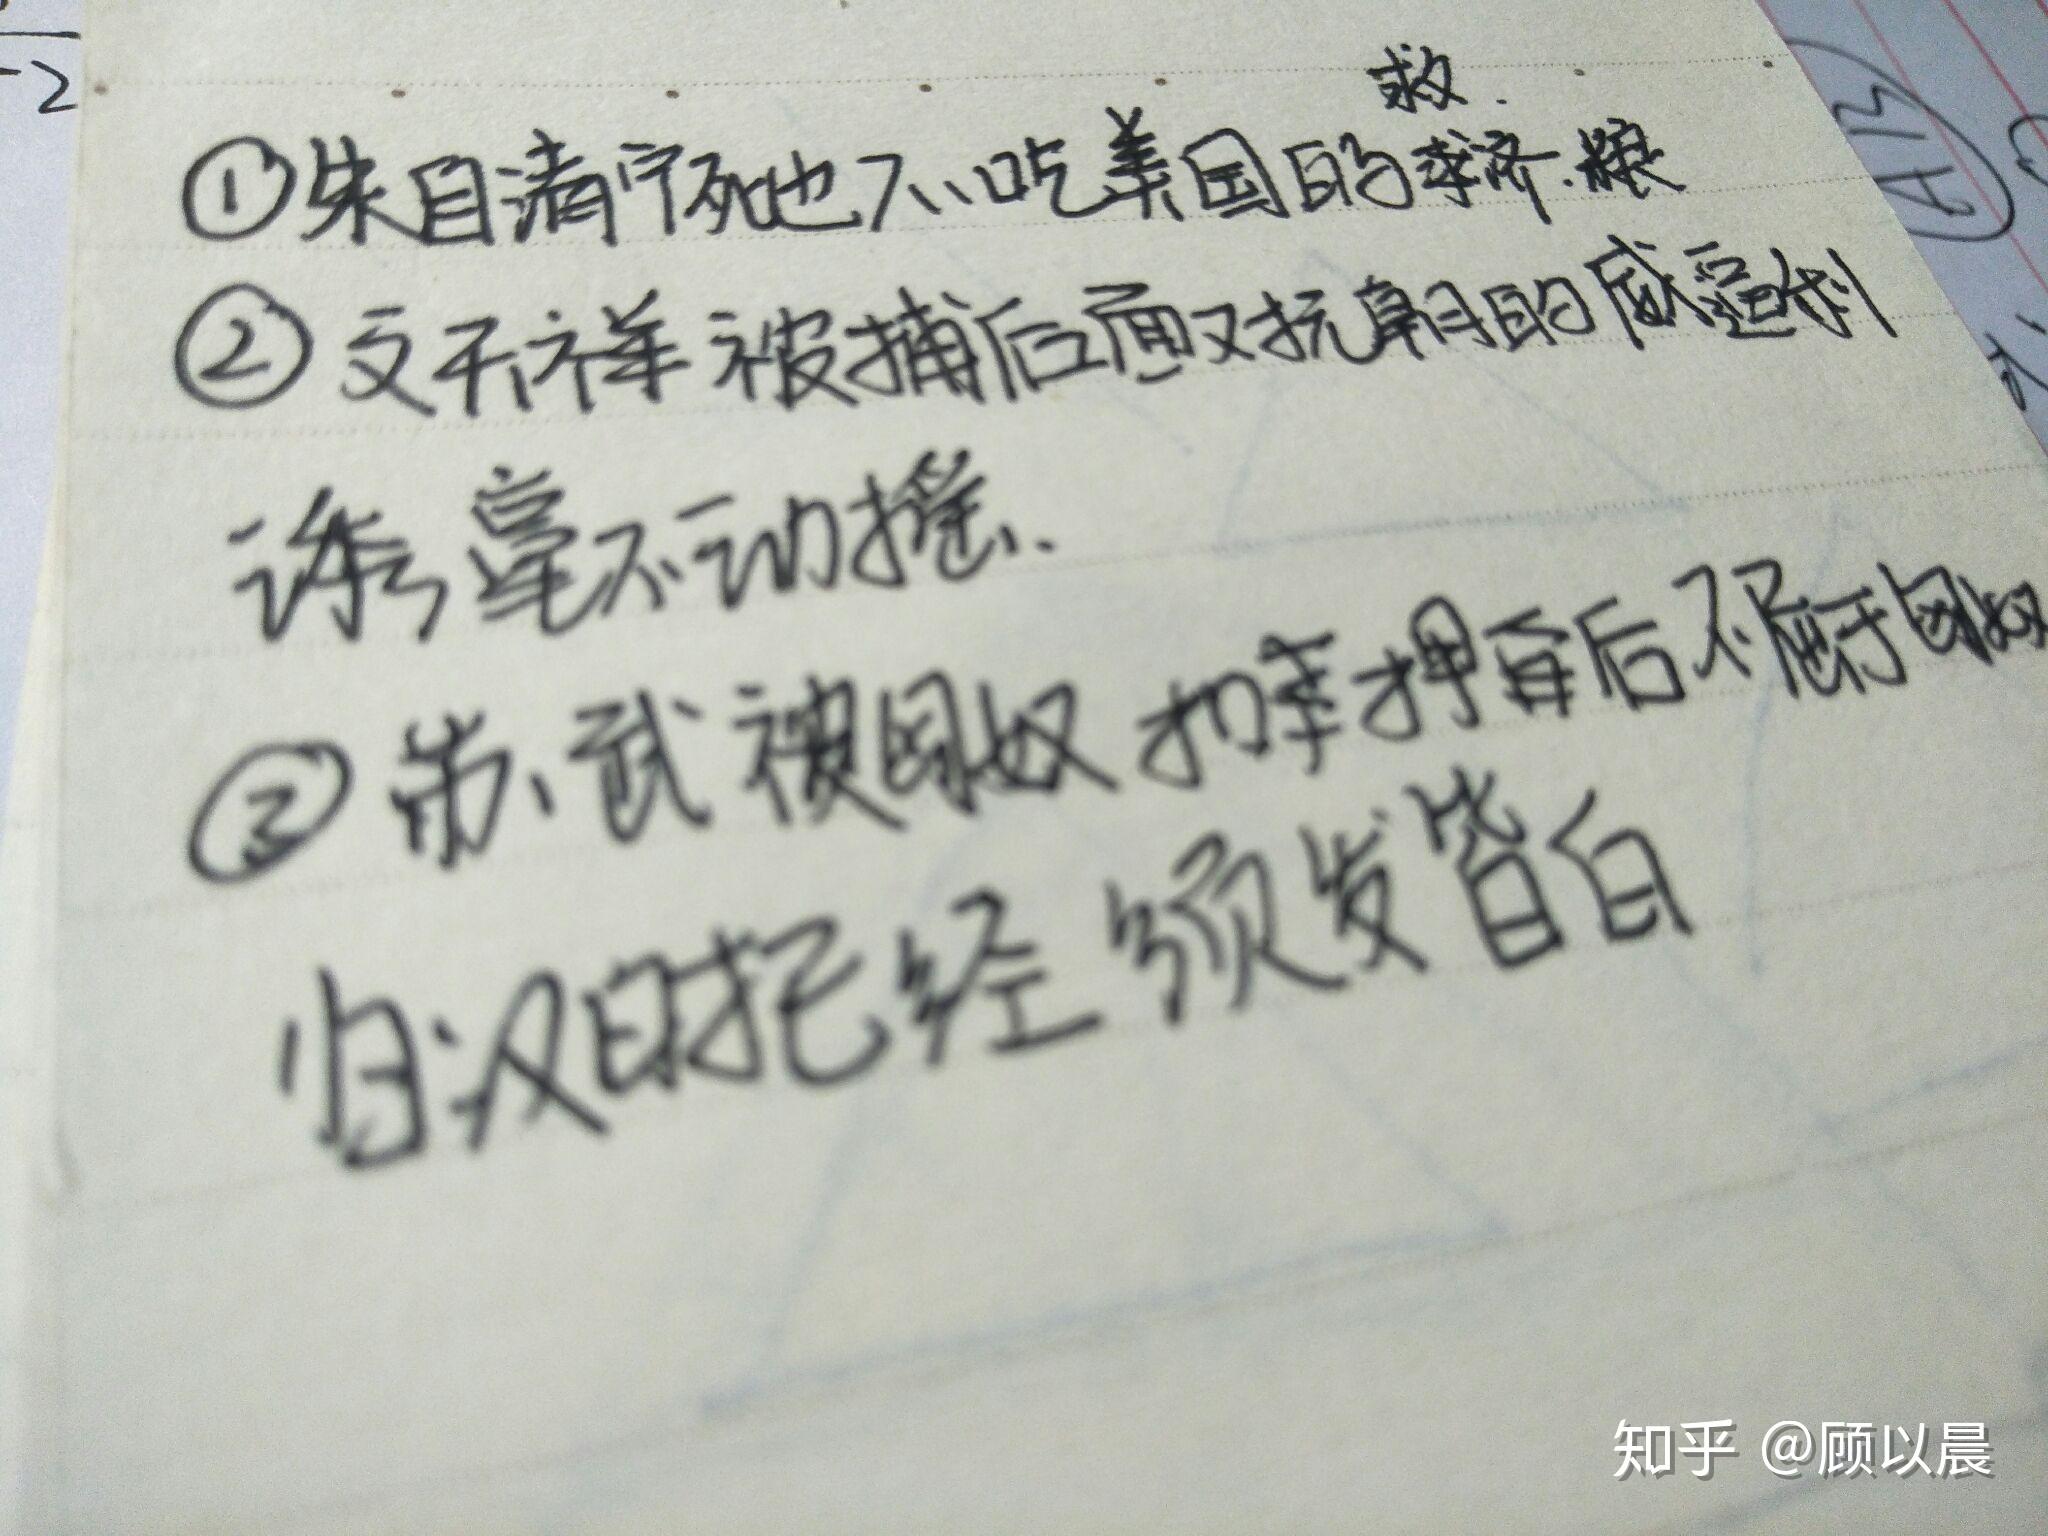 -2
救
①朱自清宁死也不吃美国的求济粮
②文天祥被捕后面对抗的威逼利
诱毫不动摇.
③苏武被匈奴扣押后不屈于匈奴
归汉时把经须发皆白
知乎 @顾以晨